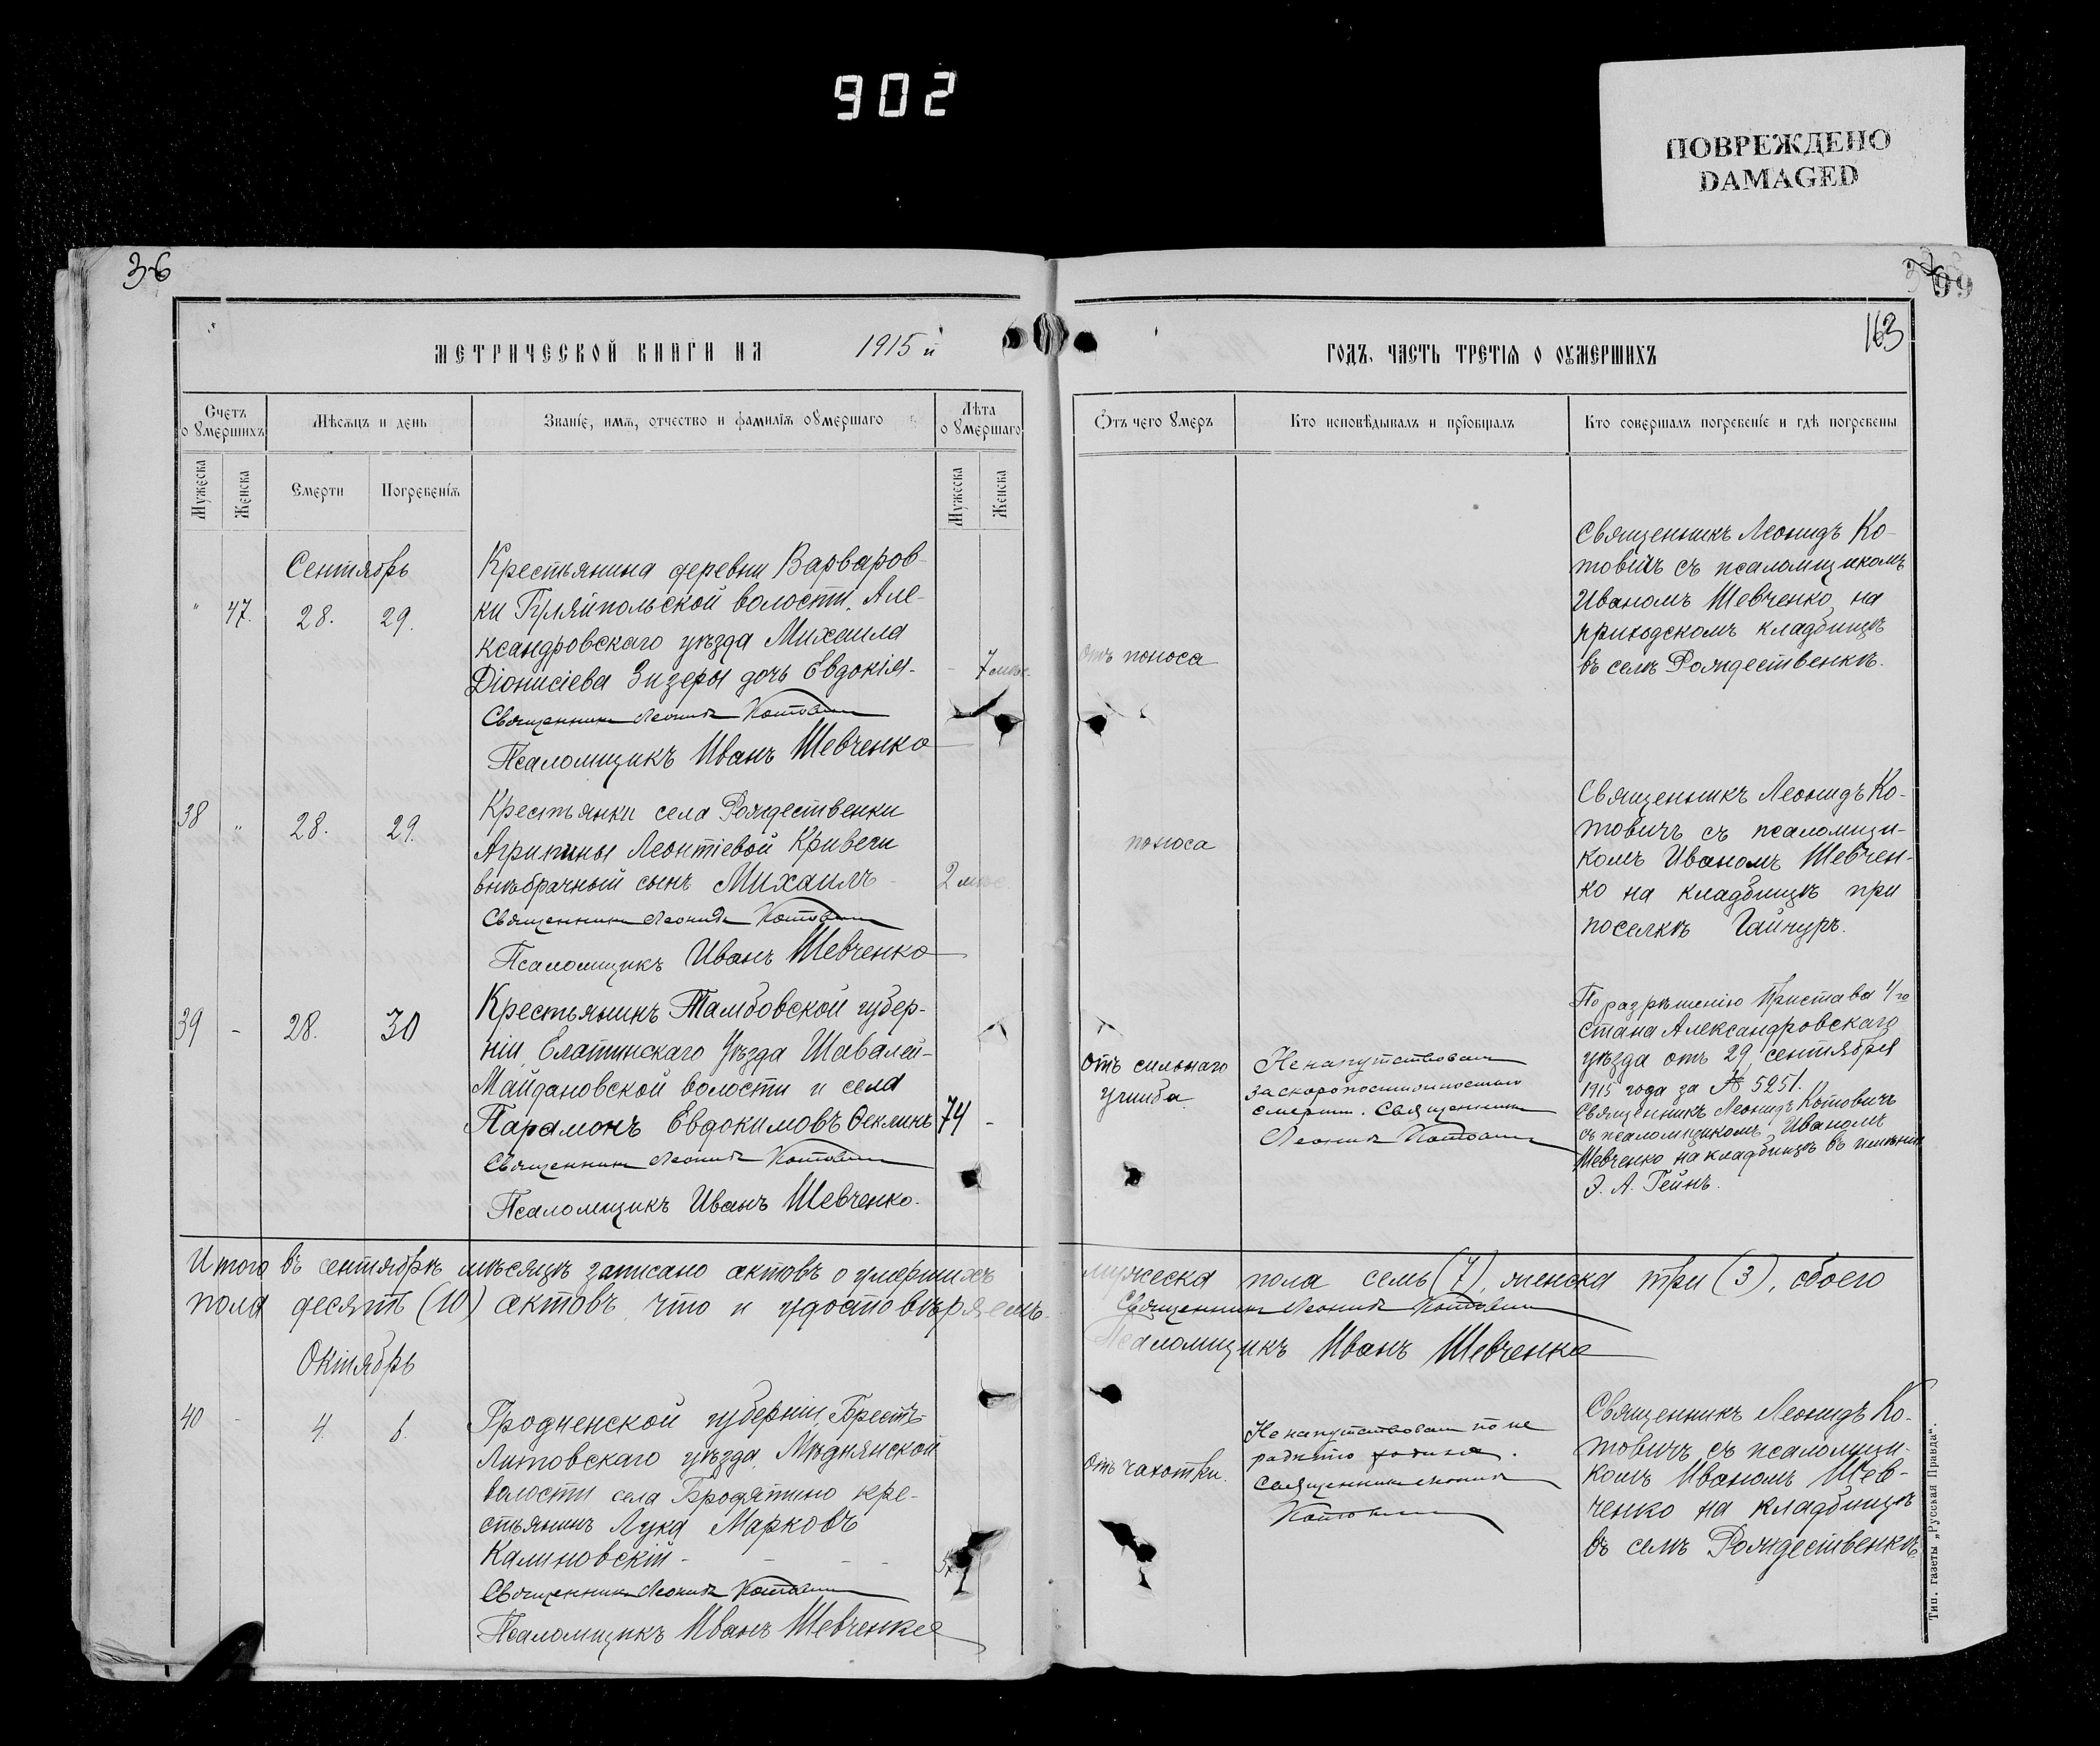 902
ПОВРЕЖДЕНО
DAMAGED
36
99
163
МЕТРИЧЕСКОЙ КНИГИ НА 1915 й
ГОДЪ, ЧАСТЬ ТРЕТІЯ О ОУМЕРШИХЪ
Счетъ оумершихъ
Мѣсяцъ и день
Званіе, имя, отчество и фамилія оумершаго
Лѣта оумершаго
Отъ чего умеръ
Кто исповѣдывалъ и пріобщалъ
Кто совершалъ погребеніе и гдѣ погребены
Мужеска
Женска
Смерти
Погребенія
Мужеска
Женска
Сентябрь
" 47. 28. 29.
Крестьянина деревни Варваров-
ки Гуляйпольской волости, Але-
ксандровскаго уѣзда Михаила
Діонисіева Зизеры дочь Евдокія-
Священникъ Леонидъ Котовичъ
Псаломщикъ Иванъ Шевченко
- 7 мѣс.
Отъ поноса
Священникъ Леонидъ Ко-
товичъ съ псаломщикомъ
Иваномъ Шевченко на
приходскомъ кладбищѣ
въ селѣ Рождественкѣ.
38 " 28. 29.
Крестьянки села Рождественки
Агрипины Леонтіевой Кривечи
внѣбрачный сынъ Михаилъ-
Священникъ Леонидъ Котовичъ
Псаломщикъ Иванъ Шевченко
2 мѣс.
поноса
Священникъ Леонидъ Ко-
товичъ съ псаломщи-
комъ Иваномъ Шевчен-
ко на кладбищѣ при
поселкѣ Гайчуръ.
39 - 28. 30
Крестьянинъ Тамбовской губер-
ніи, Елатинскаго Уѣзда Шавалей-
Майдановской волости и села
Парамонъ Евдокимовъ Феклинъ
Священникъ Леонидъ Котовичъ
Псаломщикъ Иванъ Шевченко.
74 -
Отъ сильнаго
ушиба
Ненапутствованъ
за скоропостижностью
смерти. Священникъ
Леонидъ Котовичъ
По разрѣшенію Пристава 4/го
стана Александровскаго
уѣзда отъ 29 сентября
1915 года за № 5251.
Священникъ Леонидъ Котовичъ
съ псаломщикомъ Иваномъ
Шевченко на кладбищѣ въ имѣніи
Э. А. Гейнъ.
Итого въ сентябрѣ мѣсяцѣ записано актовъ о умершихъ мужеска пола семь (7), женска три (3), обоего
пола десять (10) актовъ, что и удостовѣряемъ.
Священникъ Леонидъ Котовичъ
Псаломщикъ Иванъ Шевченко
Октябрь
40 - 4. 6.
Гродненской губерніи, Брестъ-
Литовскаго уѣзда, Мѣднянской
волости села Бродятино кре-
стьянинъ Лука Марковъ
Калиновскій - - - -
Священникъ Леонидъ Котовичъ
Псаломщикъ Иванъ Шевченко
Отъ чахотки.
Ненапутствованъ по не
Священникъ Леонидъ
Котовичъ
Священникъ Леонидъ Ко-
товичъ съ псаломщи-
комъ Иваномъ Шев-
ченко на кладбищѣ
въ селѣ Рождественкѣ
Тип. газеты „Русская Правда".